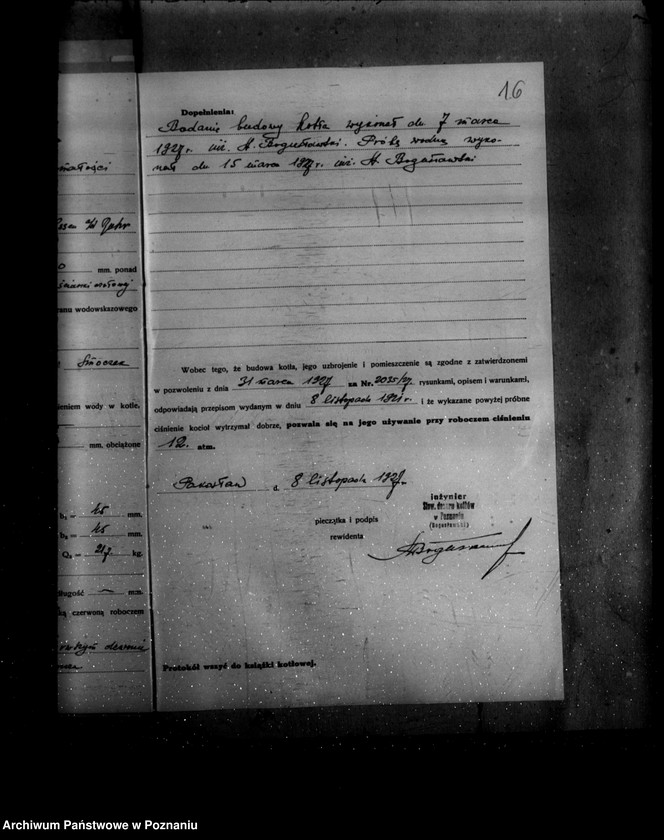 16
Dopełnienia:
Badanie budowy kotła wykonał dn. 7 marca
1927r. inż. A. Bogusławski. Próbę wodną wyko-
nał dn. 15 marca 1927r. inż. A. Bogusławski
Wobec tego, że budowa kotła, jego uzbrojenie i pomieszczenie są zgodne z zatwierdzonemi
w pozwoleniu z dnia 31 marca 1927 za Nr. 2035/27. rysunkami, opisem i warunkami,
odpowiadają przepisom wydanym w dniu 8 listopada 1921r. i że wykazane powyżej próbne
ciśnienie kocioł wytrzymał dobrze, pozwala się na jego używanie przy roboczem ciśnieniu
12. atm.
d. 8 listopada 1927r.
inżynier
Stow. dozoru kotłów
w Poznaniu
(Bogusławski)
pieczątka i podpis
rewidenta
Protokół wszyć do książki kotłowej.
mm. ponad
wodowskazowego
Smoczek
wody w kotle.
mm. obciążone
b₁ = 45 mm.
b₂ = 45 mm.
kg.
mm.
czerwoną roboczem
Archiwum Państwowe w Poznaniu